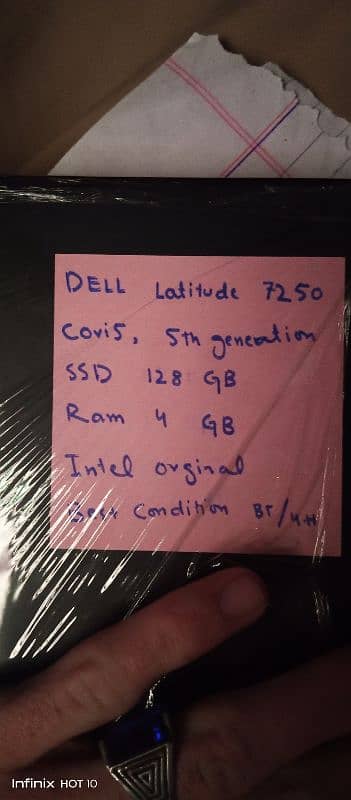 DELL Latitude 7250
Cori5, 5th generation
SSD 128 GB
Ram 4 GB
Intel orginal
Best Condition BT/4H
Infinix HOT 10